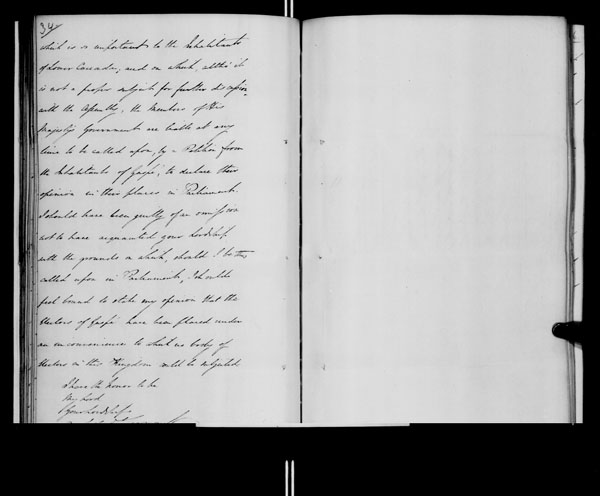 34
which is so important to the Inhabitants
of Lower Canada, and on which, altho' it
is not a proper subject for further discussion
with the Assembly, the Members of His
Majesty's Government are liable at any
time to be called upon, by a Petition from
the Inhabitants of Gaspé, to declare their
opinion in their places in Parliament.
I should have been guilty of an omission
not to have acquainted your Lordship
with the grounds on which, should I be thus
called upon in Parliament, I should
feel bound to state my opinion that the
Electors of Gaspé have been placed under
an inconvenience to which no body of
Electors in this Kingdom could be subjected
I have the honor to be
My Lord
Your Lordship's